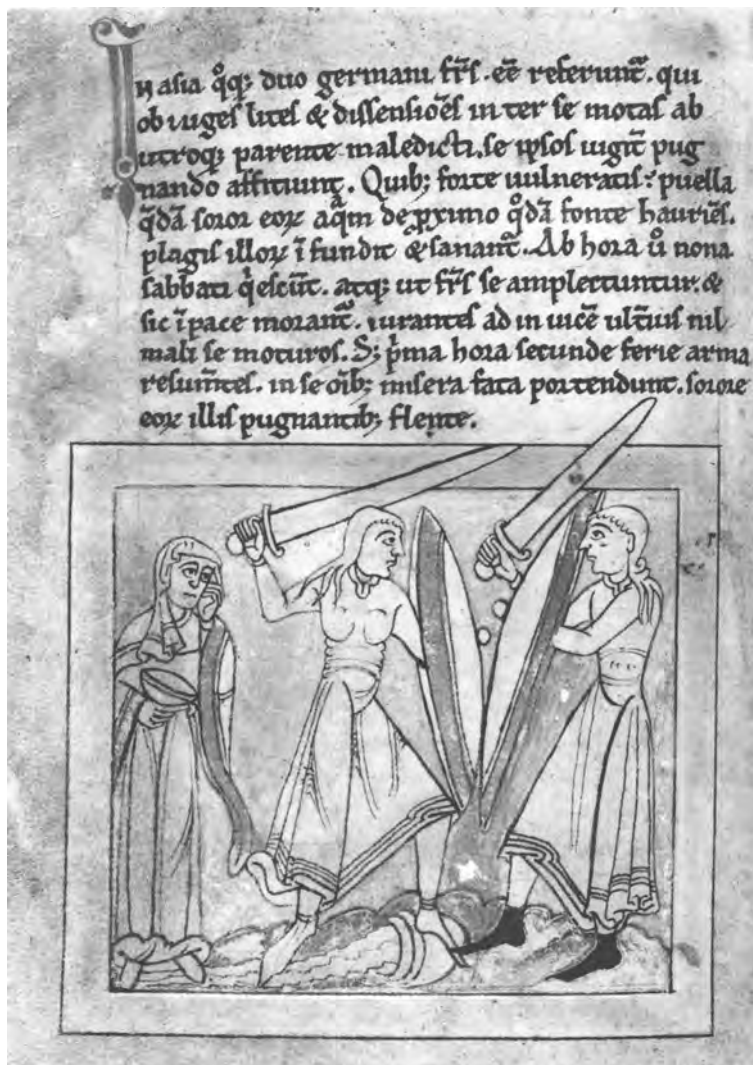 In asia q̊q; duo germani fr̄s. eē referunt̄. qui
ob iuges lites & dissensiōes inter se motas ab
utroq; parente maledicti. se ipsos iugit̄ pug
nando afficiunt. Quib; forte uulneratis: puella
q̄dā soror eoꝝ aqᵃm de ꝓximo q̊dā fonte hauriēs.
plagis illoꝝ īfundit & sanant̄. Ab hora ů nona
sabbati qⁱescūt. atq; ut fr̄s se amplectuntur. &
sic īpace morant̄. iurantes ad inuicē ult̄ius nil
mali se moturos. S; pⁱma hora secunde ferie arma
resum̄tes. in se oīb; misera fata portendunt. sorore
eoꝝ illis pugnantib; flente.